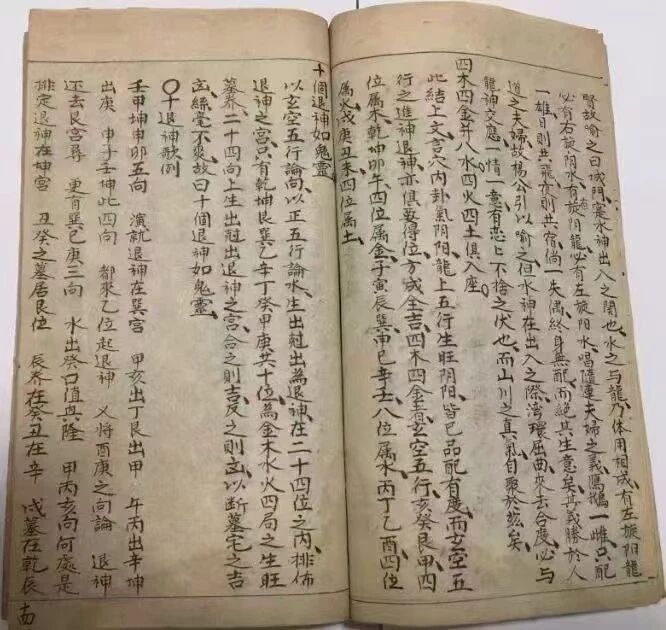 腎故喻之曰城門寔水神出入之関也水之与龍乃体用相成有左旋阳龍
必有右旋阴水有右旋阴龍必有左旋阳水唱隨夫婦之義鴈鵝一雌只配
一雄日則共飛亦則共宿倘一失偶終身無配而絕其生意矣其義勝於人
道之夫婦故楊公引以喻之但水神在出入之際湾環屈曲來去合度必与
龍神交應一情一意有恋上不捨之伏也而山川之真氣自聚於兹矣
四木四金并八水四火四土俱入座
此結上文言穴内卦氣阴阳龍上五行生旺阴阳皆已品配有度而玄空五
行之進神退神亦俱要得位方成全吉四木四金者玄空五行亥癸艮甲四
位属木乾坤卯午四位属金子寅辰巽申巳辛壬八位属水丙丁乙酉四位
属火戌庚丑未四位属土
十個退神如鬼靈
以玄空五行論向以正五行論水生出尅出為退神在二十四位之内排佈
退神之宮只有乾坤艮巽乙辛丁癸甲庚共十位為金木水火四局之生旺
墓养二十四向上生出尅出退神之宮合之則吉反之則凶以断墓宅之吉
凶絲毫不爽故曰十個退神如鬼靈
〇十退神歌例
壬甲坤申卯五向 演就退神在巽宮 甲亥出丁艮出甲 午丙出辛坤
出庚 申子壬坤此四向 都來乙位起退神 又将酉庚之向論 退神
还去艮宮尋 更有巽巳庚三向 水出癸口值兴隆 甲丙亥向何處是
排定退神在坤宮 丑癸之墓居艮位 辰养在癸丑在辛 戌墓在乾辰